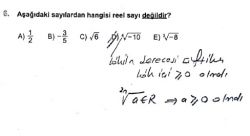 6. Aşağıdaki sayılardan hangisi reel sayı değildir?
A) 1/2 B) -3/5 C) √6 D) ∜-10 E) ∛-8
kökün derecesi çift ise
kök içi ≥ 0 olmalı
²ⁿ√a ∈ R ⇒ a ≥ 0 olmalı